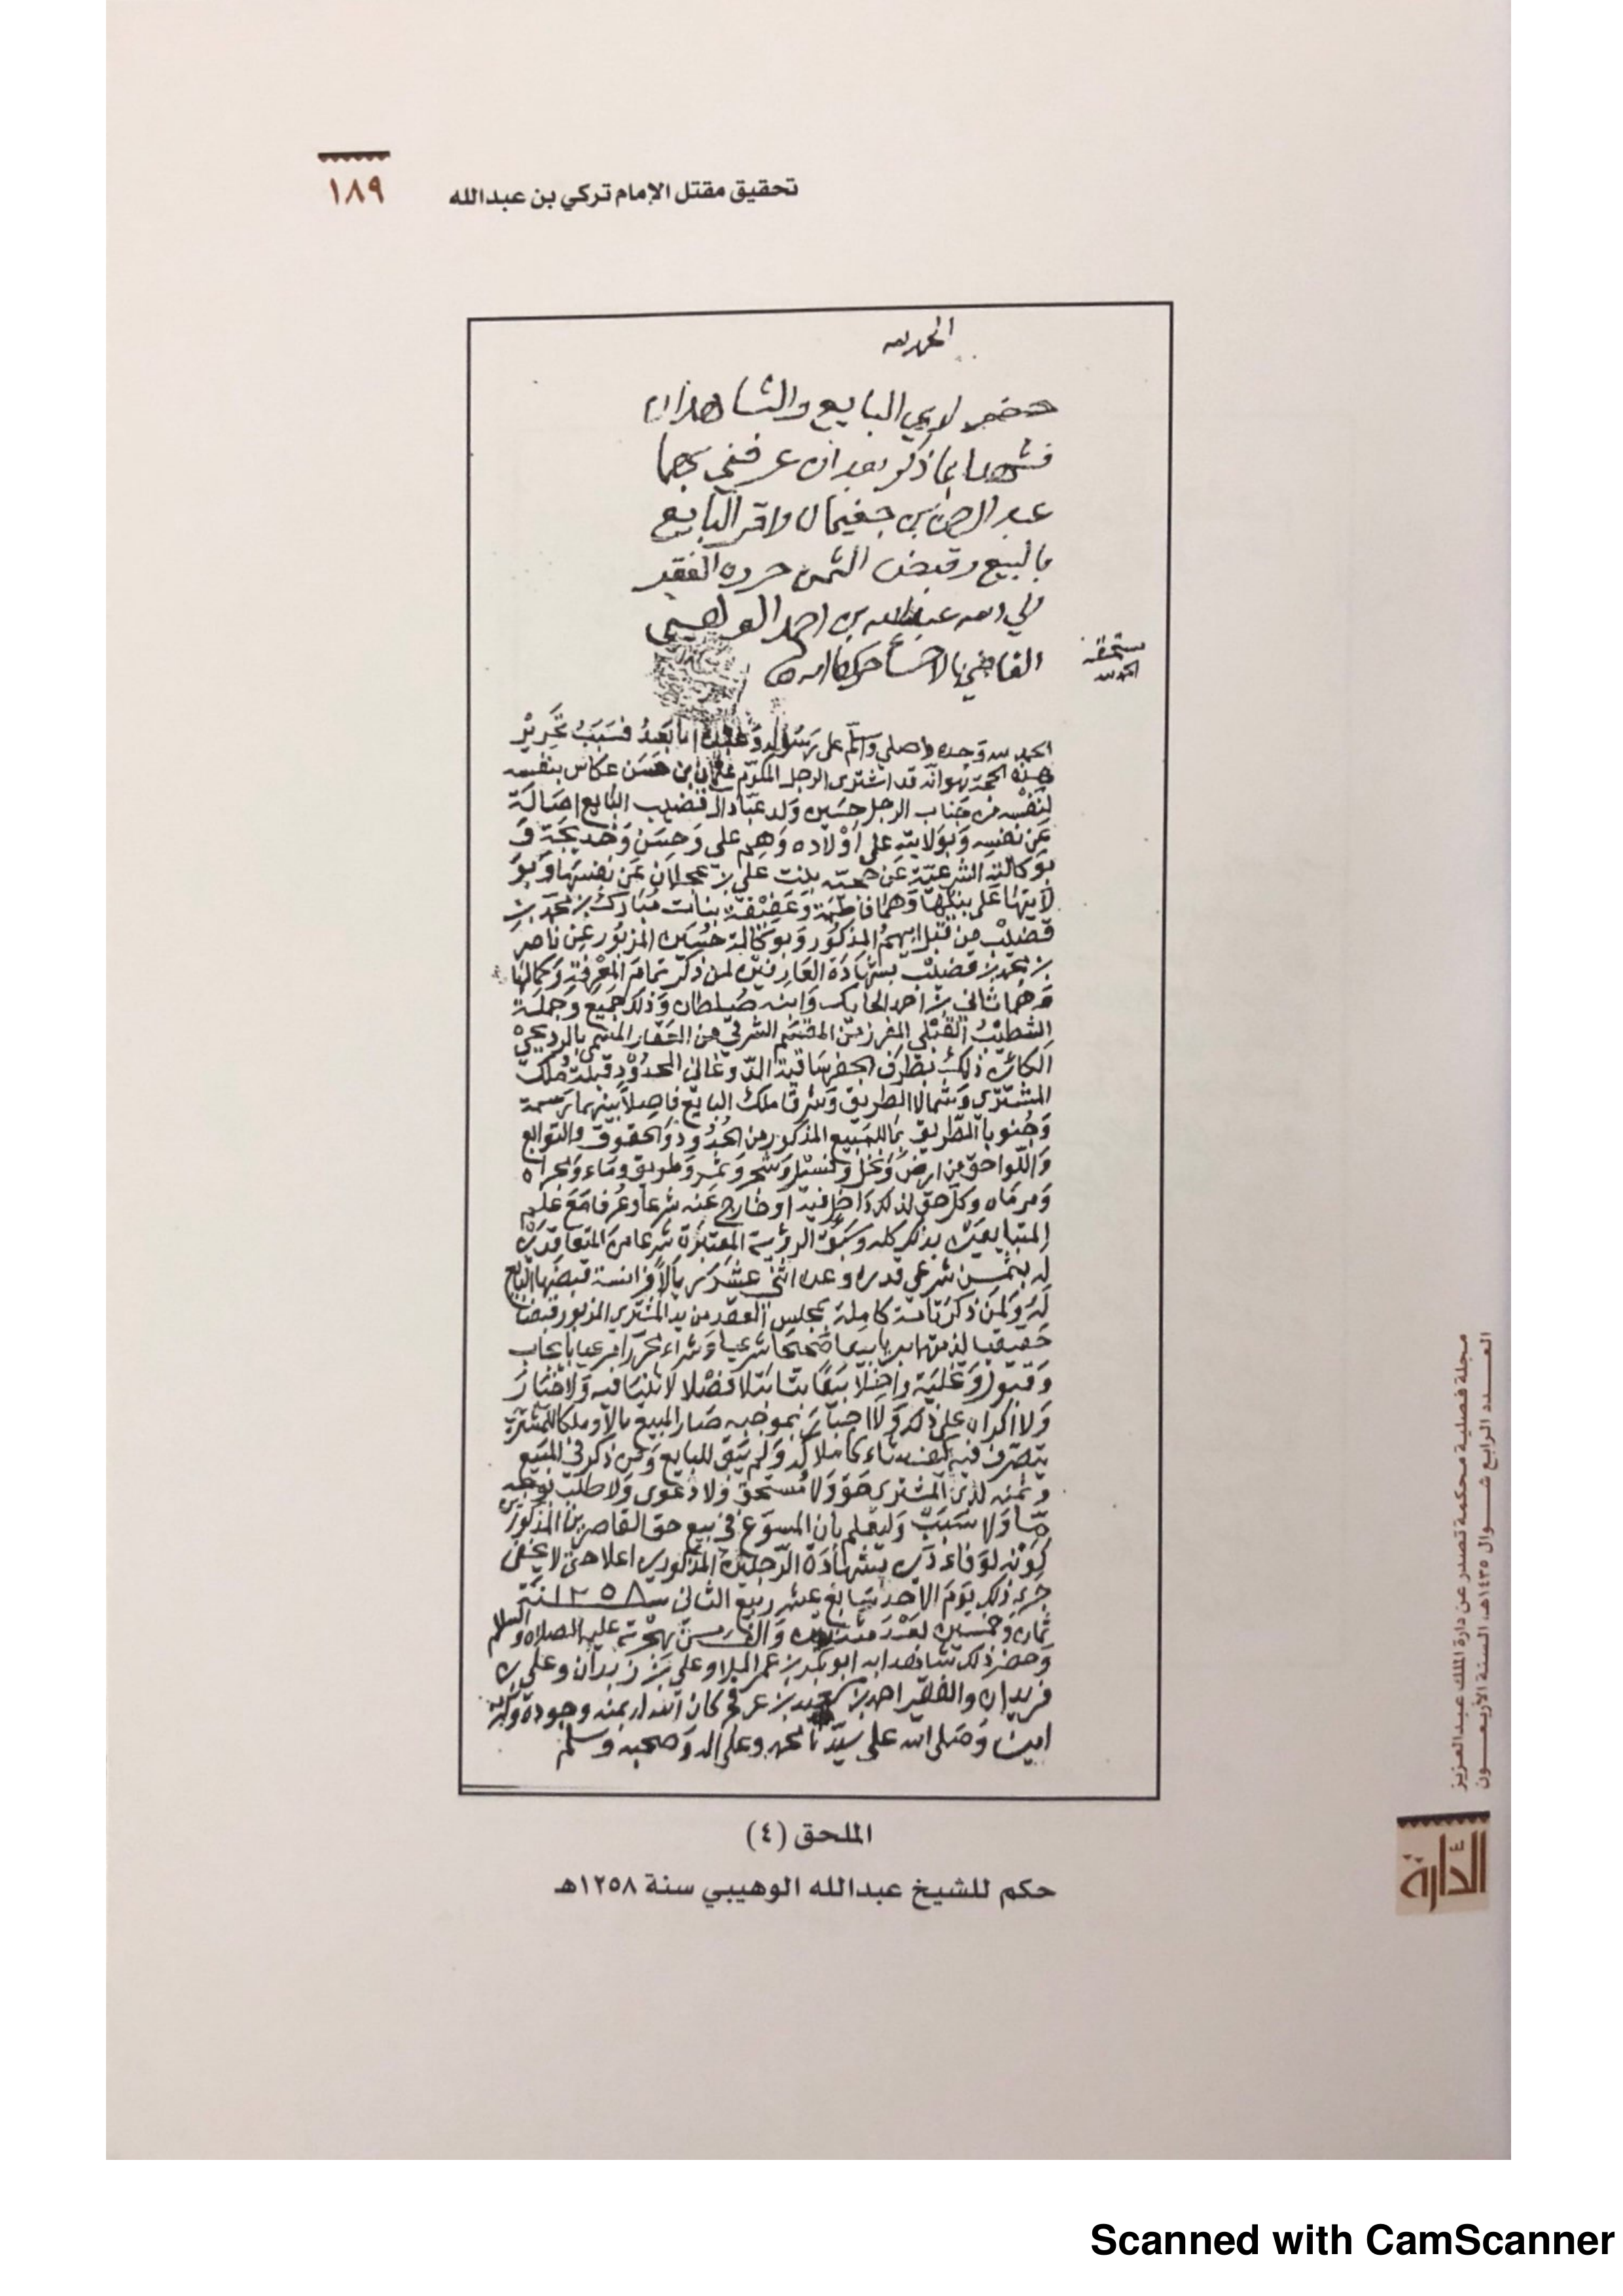 تحقيق مقتل الإمام تركي بن عبدالله
١٨٩
الحمد لله
حضر لدي البايع والشاهدان
فشهدا بما ذكر بعد ان عرفني بهما
عبد الرحمن بن جغيمان واقر البايع
بالبيع وقبض الثمن حرره الفقير
الي الله عبدالله بن احمد الوهيبي
القاضي بالاحساء
الحمد لله وحده واصلي واسلم على رسوله وعبده اما بعد فسبب تحرير
هذه الحجة هو انه قد اشترى الرجل المكرم عثمان ابن حسن عكاس بنفسه
لنفسه من جناب الرجل حسين ولد عباد ال قضيب البايع اصالة
عن نفسه وبولايته على اولاده وهم علي وحسن وخديجة و
بوكالته الشرعية عن بنت علي بن عجلان عن نفسها وبو
لايتها على بنتها وهما فاطمة بنات مبارك بن محمد بن
قضيب من قبل ابيهم المذكور وبوكالة حسين المزبور عن ناصر
بن محمد بن قضيب بشهادة العارفين لمن ذكر تمام المعرفة وكمالها
وهما ثاني بن احمد الحايك وابنه سلطان وذلك جميع وجملة
الشطيب القبلي المفرز من المقسم الشرقي من العقار المسمى
الكائن ذلك بطرف الحدود قبلة ملك
المشتري وشمالا الطريق وشرقا ملك البايع فاصلا بينهما
وجنوبا الطريق بما للمبيع المذكور من الحدود والحقوق والتوابع
واللواحق من ارض ونخل وشجر وثمر وطريق وماء ومجراه
ومرماه وكل حق لذلك داخل فيه او خارج عنه شرعا وعرفا مع علم
المتبايعين بذلك كله وسبق الرؤية المعتبرة شرعا من المتعاقدين
له بثمن شرعي قدره وعده اثني عشر ريالا فرانسة قبضها البايع
له ولمن ذكر تامة كاملة بمجلس العقد من يد المشتري المزبور قبضا
حقيقيا بيعا صحيحا شرعيا وشراء محررا مرعيا بايجاب
وقبول وتخلية بيعا بتا بتلا فصلا لا ثنيا فيه ولا خيار
ولا اكراه على ذلك ولا اجبار بموجبه صار المبيع مالا وملكا للمشتري
يتصرف فيه كيف شاء كاملا ولم يبق للبايع ومن ذكر في المبيع
وثمنه لدى المشتري حق ولا مستحق ولا دعوى ولا طلب بوجه
ما ولا سبب وليعلم بان المسوغ في بيع حق القاصرين المذكورين
كونه لوفاء دين بشهادة الرجلين المذكورين اعلا حتى لا يخفى
جرى ذلك يوم الاحد سابع عشر ربيع الثاني سنة ١٢٥٨
ثمان وخمسين بعد مئتين والف من هجرته عليه الصلاة والسلام
وحضر ذلك شاهدا به ابو بكر بن عمر الملا وعلي بن زيدان وعلي بن
فريدان والفقير احمد بن محمد بن عرفج كان الله له بمنه وجوده وكرمه
امين وصلى الله على سيدنا محمد وعلى اله وصحبه وسلم
الملحق (٤)
حكم للشيخ عبدالله الوهيبي سنة ١٢٥٨هـ
مجلة فصلية محكمة تصدر عن دارة الملك عبدالعزيز
العـــدد الرابع شـــوال ١٤٣٥هـ، السنة الأربعـــون
الدارة
Scanned with CamScanner